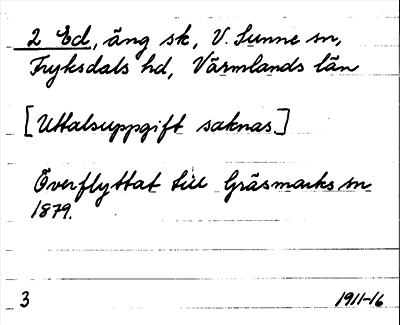 2 Ed, äng sk, V. Sunne sn,
Fryksdals hd, Värmlands län
[Uttalsuppgift saknas.]
Överflyttat till Gräsmarks sn
1879.
3 1911-16